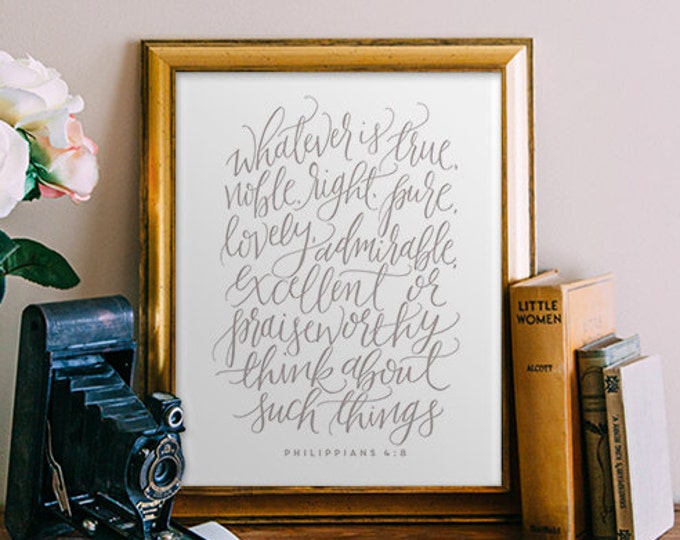 whatever is true,
noble, right, pure,
lovely, admirable,
excellent or
praiseworthy
think about
such things
PHILIPPIANS 4:8
LITTLE
WOMEN
ALCOTT